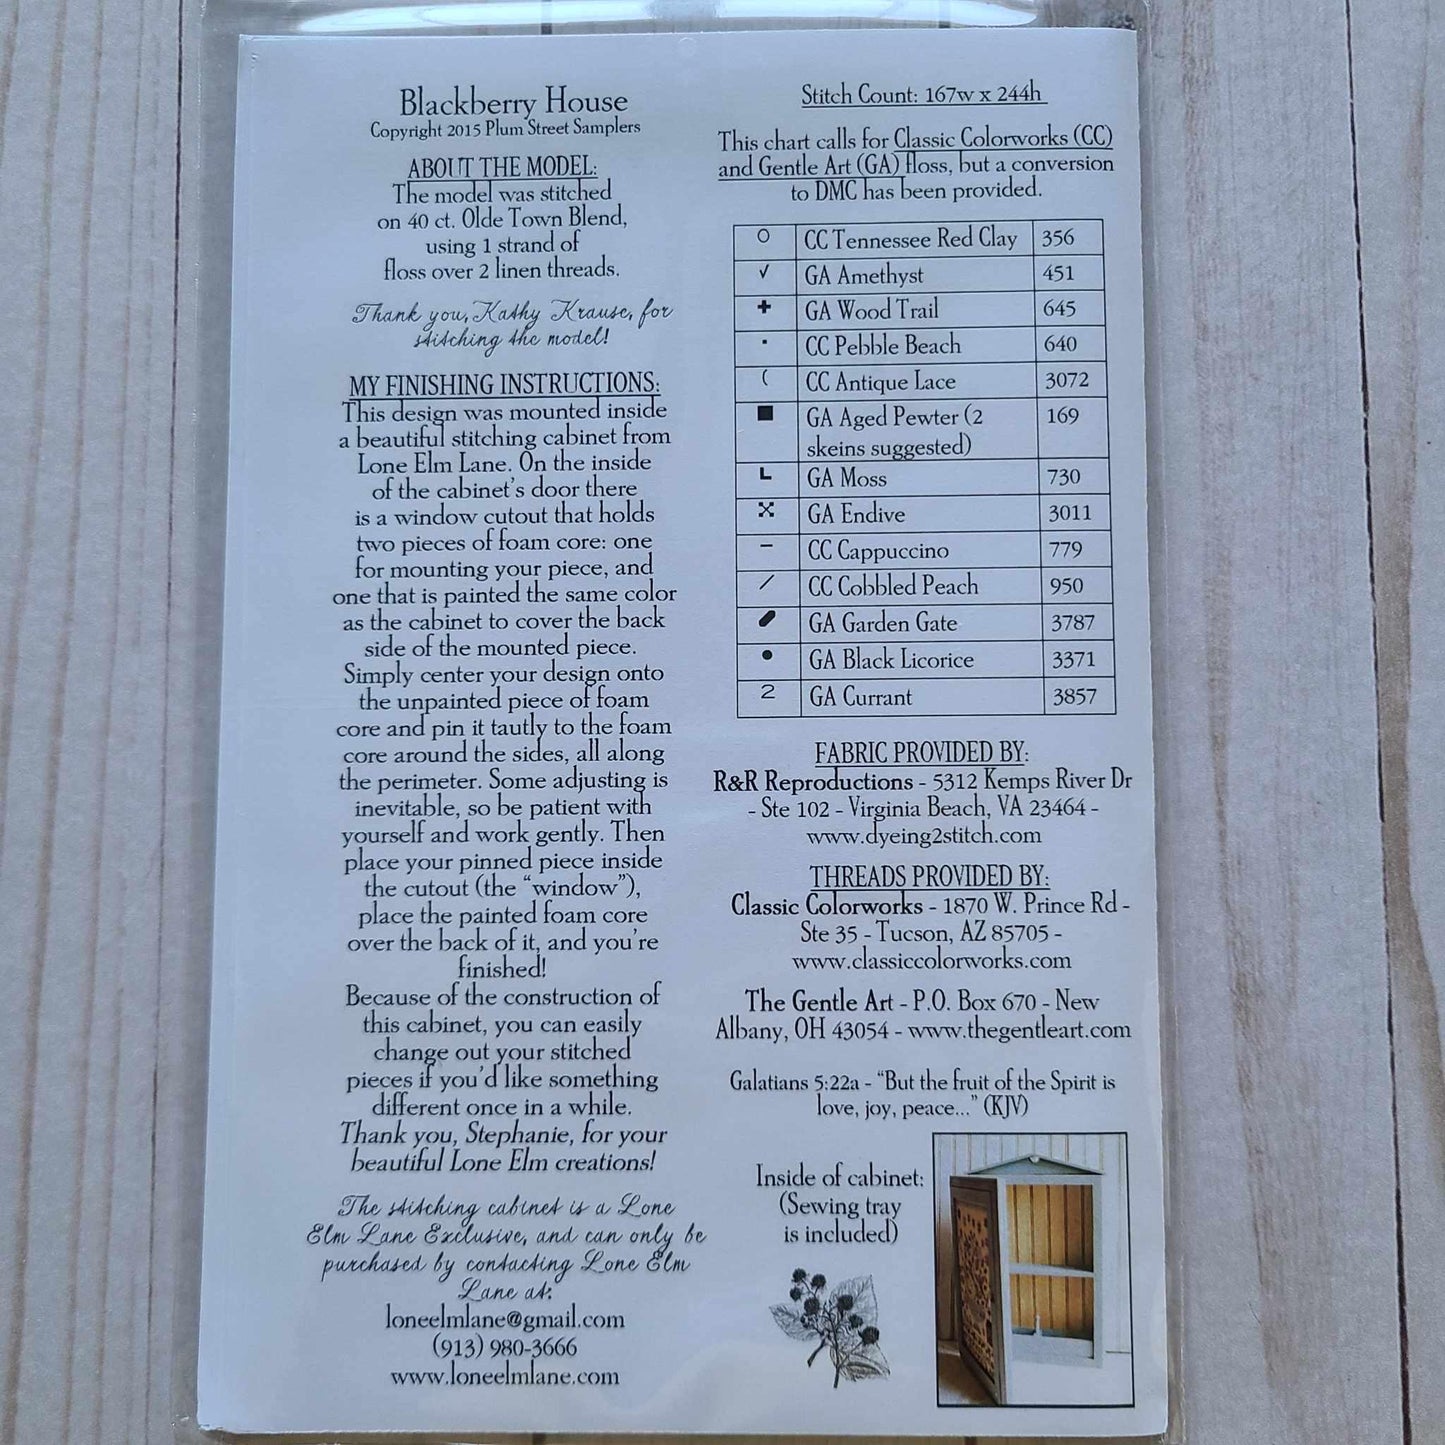 Blackberry House
Copyright 2015 Plum Street Samplers
ABOUT THE MODEL:
The model was stitched
on 40 ct. Olde Town Blend,
using 1 strand of
floss over 2 linen threads.
Thank you, Kathy Krause, for
stitching the model!
MY FINISHING INSTRUCTIONS:
This design was mounted inside
a beautiful stitching cabinet from
Lone Elm Lane. On the inside
of the cabinet's door there
is a window cutout that holds
two pieces of foam core: one
for mounting your piece, and
one that is painted the same color
as the cabinet to cover the back
side of the mounted piece.
Simply center your design onto
the unpainted piece of foam
core and pin it tautly to the foam
core around the sides, all along
the perimeter. Some adjusting is
inevitable, so be patient with
yourself and work gently. Then
place your pinned piece inside
the cutout (the “window”),
place the painted foam core
over the back of it, and you're
finished!
Because of the construction of
this cabinet, you can easily
change out your stitched
pieces if you'd like something
different once in a while.
Thank you, Stephanie, for your
beautiful Lone Elm creations!
The stitching cabinet is a Lone
Elm Lane Exclusive, and can only be
purchased by contacting Lone Elm
Lane at:
loneelmlane@gmail.com
(913) 980-3666
www.loneelmlane.com
Stitch Count: 167w x 244h
This chart calls for Classic Colorworks (CC)
and Gentle Art (GA) floss, but a conversion
to DMC has been provided.
O CC Tennessee Red Clay 356
✓ GA Amethyst 451
+ GA Wood Trail 645
· CC Pebble Beach 640
( CC Antique Lace 3072
■ GA Aged Pewter (2 169
skeins suggested)
L GA Moss 730
GA Endive 3011
– CC Cappuccino 779
/ CC Cobbled Peach 950
GA Garden Gate 3787
● GA Black Licorice 3371
2 GA Currant 3857
FABRIC PROVIDED BY:
R&R Reproductions - 5312 Kemps River Dr
- Ste 102 - Virginia Beach, VA 23464 -
www.dyeing2stitch.com
THREADS PROVIDED BY:
Classic Colorworks - 1870 W. Prince Rd -
Ste 35 - Tucson, AZ 85705 -
www.classiccolorworks.com
The Gentle Art - P.O. Box 670 - New
Albany, OH 43054 - www.thegentleart.com
Galatians 5:22a - “But the fruit of the Spirit is
love, joy, peace...” (KJV)
Inside of cabinet:
(Sewing tray
is included)